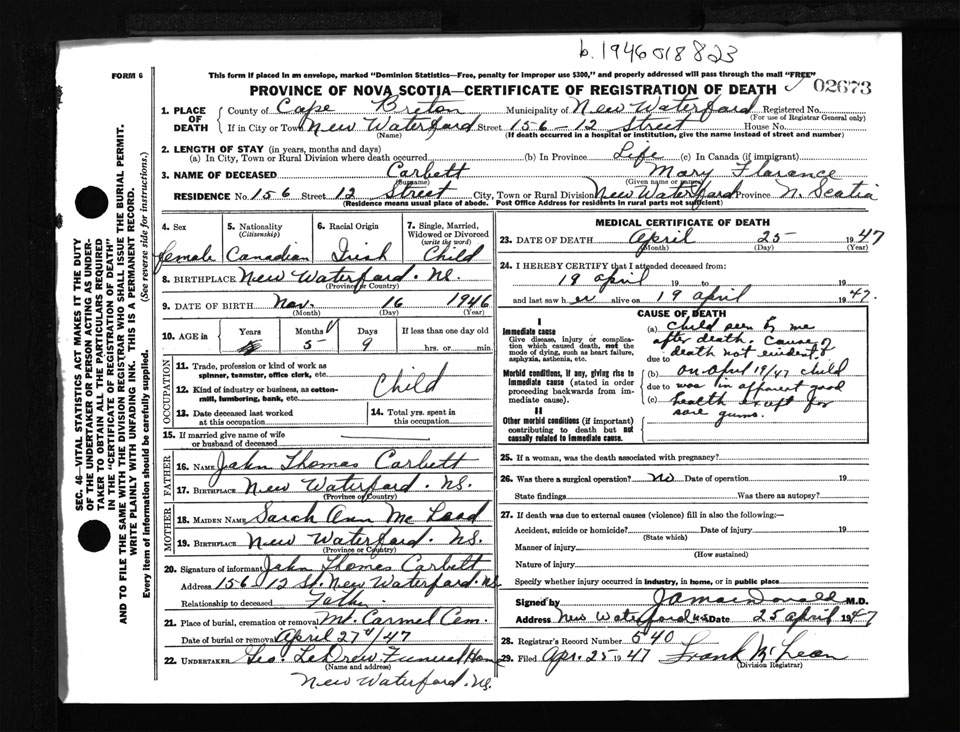 b. 1946 018823
FORM 6
This form if placed in an envelope, marked "Dominion Statistics—Free, penalty for improper use $300," and properly addressed will pass through the mail "FREE"
PROVINCE OF NOVA SCOTIA—CERTIFICATE OF REGISTRATION OF DEATH
02673
SEC. 46—VITAL STATISTICS ACT MAKES IT THE DUTY
OF THE UNDERTAKER OR PERSON ACTING AS UNDER-
TAKER TO OBTAIN ALL THE PARTICULARS REQUIRED
IN THE "CERTIFICATE OF REGISTRATION OF DEATH"
AND TO FILE THE SAME WITH THE DIVISION REGISTRAR WHO SHALL ISSUE THE BURIAL PERMIT.
WRITE PLAINLY WITH UNFADING INK. THIS IS A PERMANENT RECORD.
Every item of information should be carefully supplied. (See reverse side for instructions.)
1. PLACE OF DEATH
County of Cape Breton Municipality of New Waterford Registered No.
(For use of Registrar General only)
If in City or Town New Waterford Street 156-12 Street House No.
(Name) (If death occurred in a hospital or institution, give the name instead of street and number)
2. LENGTH OF STAY (in years, months and days)
(a) In City, Town or Rural Division where death occurred (b) In Province Life (c) In Canada (if immigrant)
3. NAME OF DECEASED Corbett Mary Florance
(Surname) (Given name or names)
RESIDENCE No. 156 Street 12 Street City, Town or Rural Division New Waterford Province N. Scotia
(Residence means usual place of abode. Post Office Address for residents in rural parts not sufficient)
4. Sex
female
5. Nationality
(Citizenship)
Canadian
6. Racial Origin
Irish
7. Single, Married,
Widowed or Divorced
(write the word)
Child
8. BIRTHPLACE New Waterford. NS.
(Province or Country)
9. DATE OF BIRTH Nov. 16 1946
(Month) (Day) (Year)
10. AGE in Years Months Days If less than one day old
5 9 hrs. or min.
OCCUPATION
11. Trade, profession or kind of work as
spinner, teamster, office clerk, etc.
12. Kind of industry or business, as cotton-
mill, lumbering, bank, etc.
Child
13. Date deceased last worked
at this occupation
14. Total yrs. spent in
this occupation
15. If married give name of wife
or husband of deceased
FATHER
16. NAME John Thomas Corbett
17. BIRTHPLACE New Waterford. NS.
(Province or Country)
MOTHER
18. MAIDEN NAME Sarah Ann Mc Lood
19. BIRTHPLACE New Waterford. NS.
(Province or Country)
20. Signature of informant John Thomas Corbett
Address 156 12 St. New Waterford. NS
Relationship to deceased Father
21. Place of burial, cremation or removal Mt. Carmel Cem.
Date of burial or removal April 27th/47
22. UNDERTAKER Geo. LeDrew Funeral Home
(Name and address)
New Waterford. NS.
MEDICAL CERTIFICATE OF DEATH
23. DATE OF DEATH April 25 1947
(Month) (Day) (Year)
24. I HEREBY CERTIFY that I attended deceased from:
19 April 19 to 19
and last saw her alive on 19 april 1947.
CAUSE OF DEATH
I
Immediate cause
Give disease, injury or complica-
tion which caused death, not the
mode of dying, such as heart failure,
asphyxia, asthenia, etc.
Morbid conditions, if any, giving rise to
immediate cause (stated in order
proceeding backwards from im-
mediate cause).
II
Other morbid conditions (if important)
contributing to death but not
causally related to immediate cause.
(a) Child seen by me
after death. Cause of
due to death not evident.
(b) on April 19/47 child
due to was in apparent good
(c) health except for
sore gums.
25. If a woman, was the death associated with pregnancy?
26. Was there a surgical operation? no Date of operation 19
State findings Was there an autopsy?
27. If death was due to external causes (violence) fill in also the following:—
Accident, suicide or homicide? Date of injury 19
(State which)
Manner of injury
(How sustained)
Nature of injury
Specify whether injury occurred in industry, in home, or in public place
Signed by JA Macdonald M.D.
Address New Waterford N.S Date 25 April 1947
28. Registrar's Record Number 540
29. Filed Apr. 25 1947 Frank McLean
(Division Registrar)